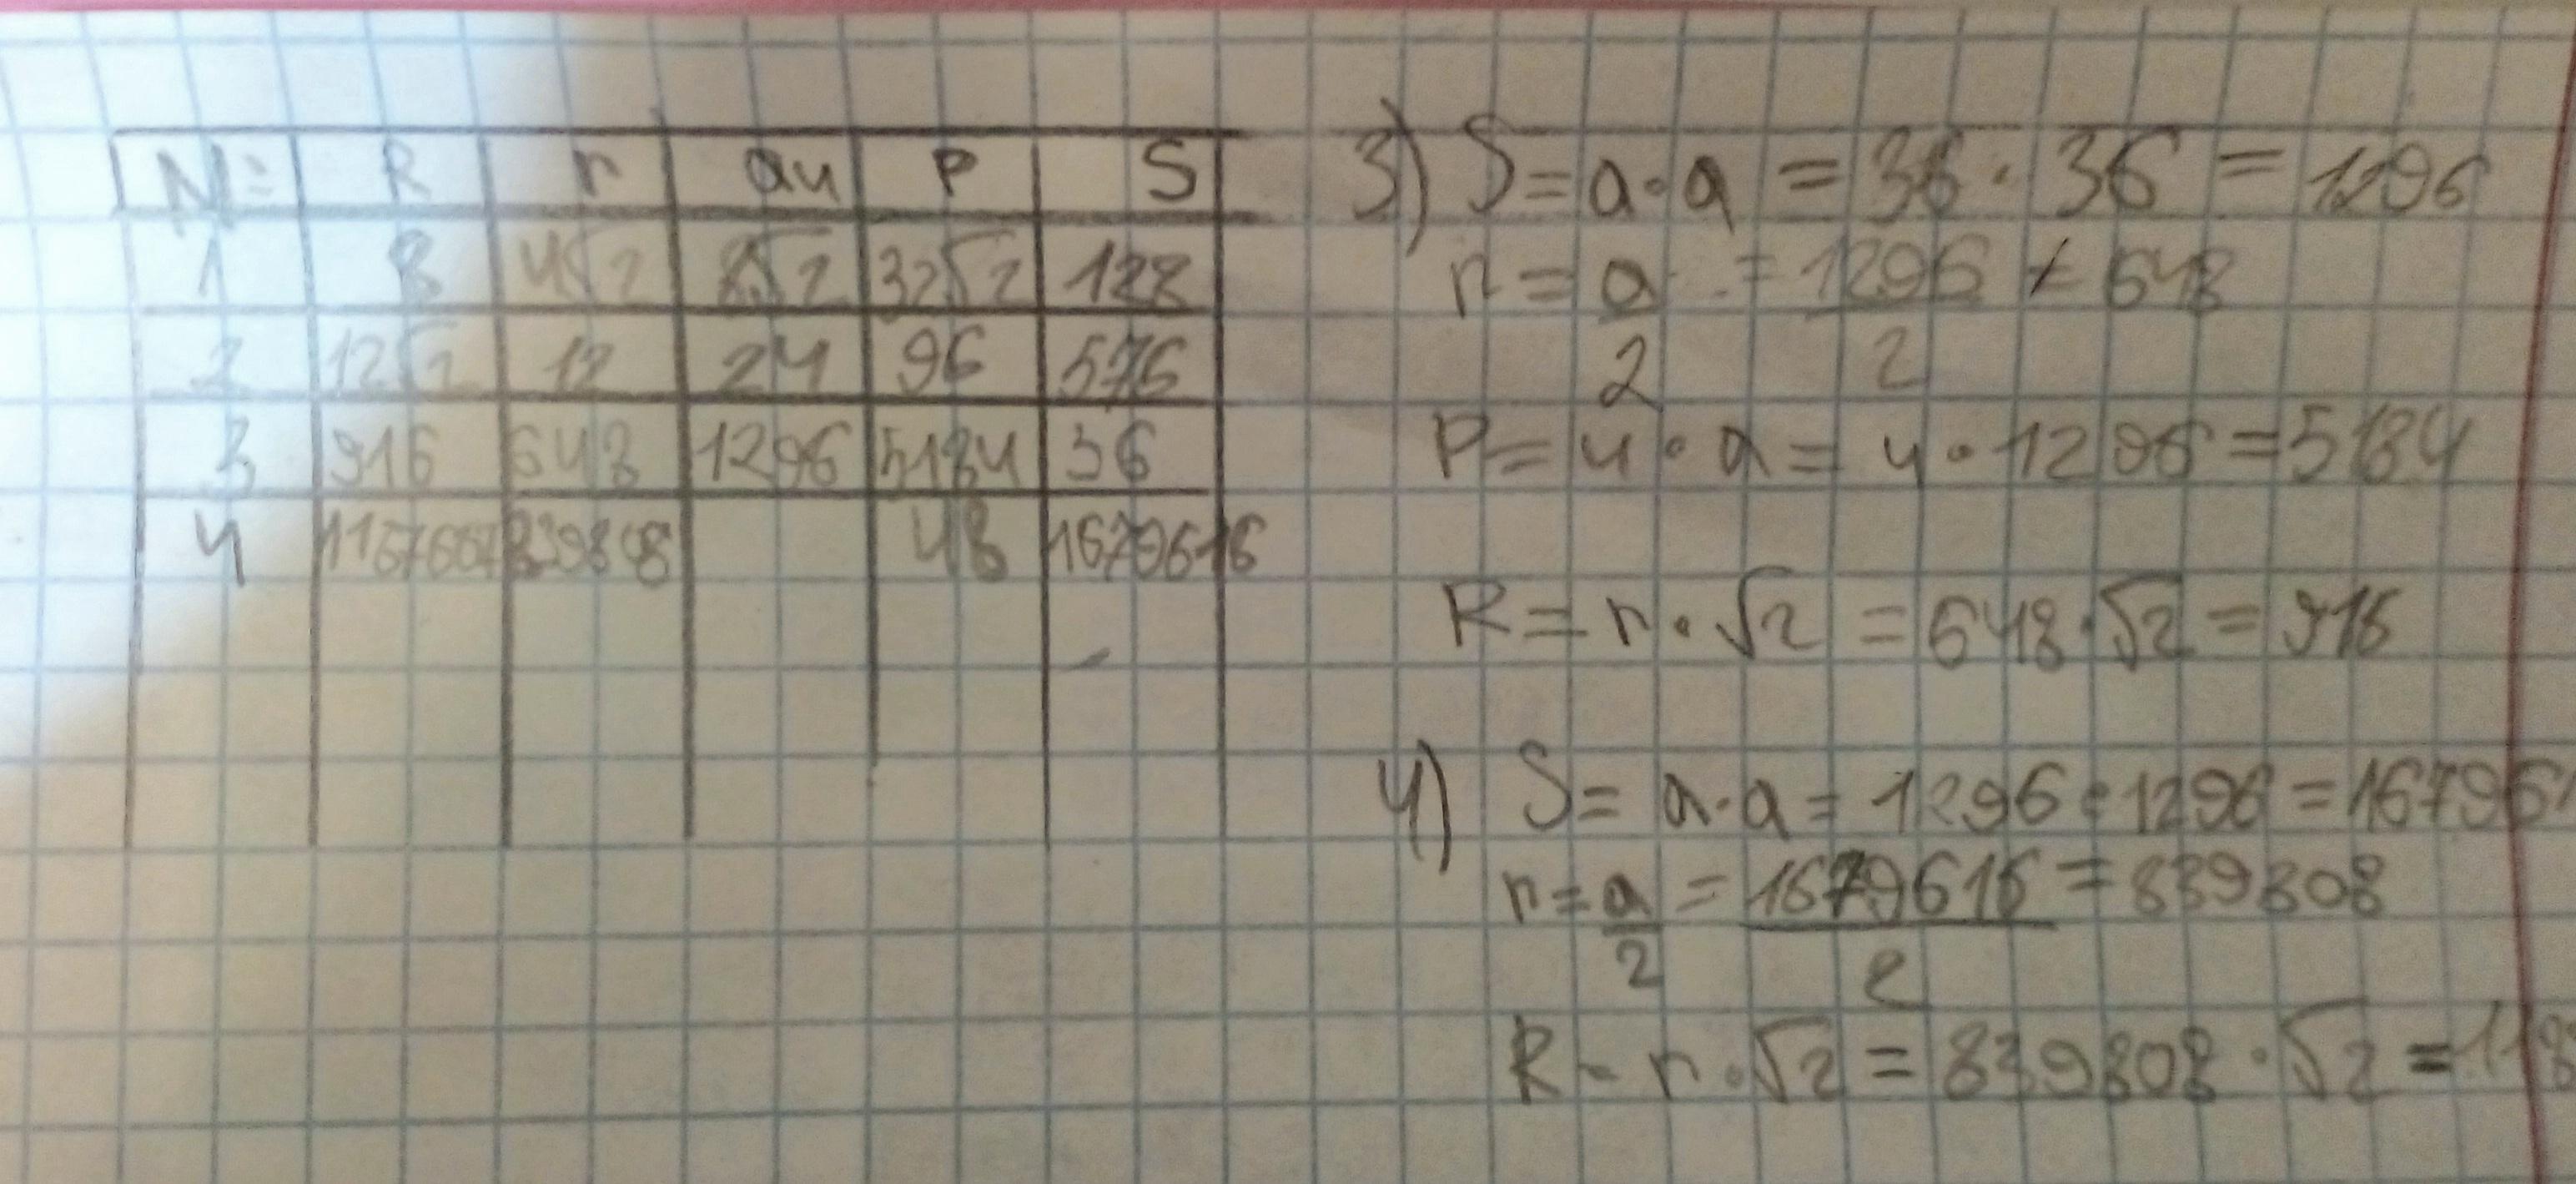 N= R r a4 P S
1 8 4√2 8√2 32√2 128
2 12√2 12 24 96 576
3 916 648 1296 5184 36
4 839808 48 1679616
3) S = a·a = 36·36 = 1296
r = a/2 = 1296/2 = 648
P = 4·a = 4·1296 = 5184
R = r·√2 = 648·√2 = 916
4) S = a·a = 1296·1296 = 167961
r = a/2 = 1679616/2 = 839808
R = r·√2 = 839808·√2 = 118